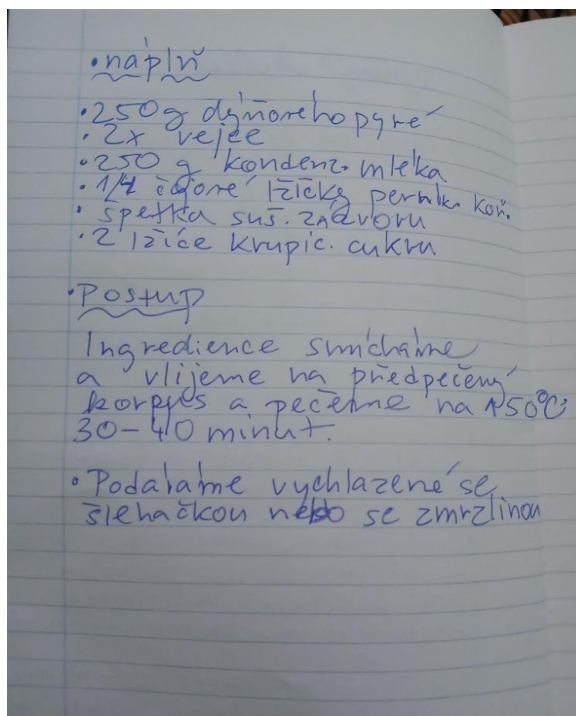 • náplň
• 250g dýňového pyré
• 2x vejce
• 250 g kondenz. mléka
• 1/4 čajové lžičky perník. koř.
• špetka suš. zázvoru
• 2 lžíce krupic. cukru
• Postup
Ingredience smícháme
a vlijeme na předpečený
korpus a pečeme na 150°C
30-40 minut.
• Podáváme vychlazené se
šlehačkou nebo se zmrzlinou